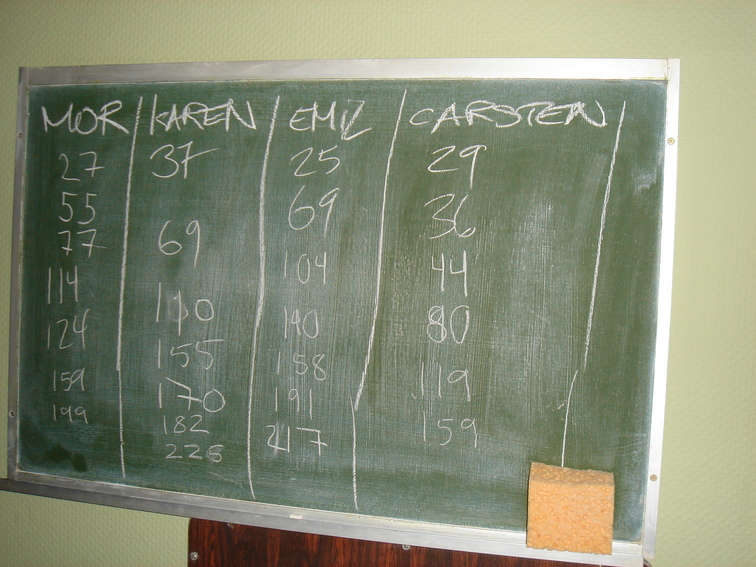 MOR KAREN EMIL CARSTEN
27 37 25 29
55 69 36
77 69 104 44
114 110 140 80
124 155 158 119
159 170 191 159
199 182 217
226